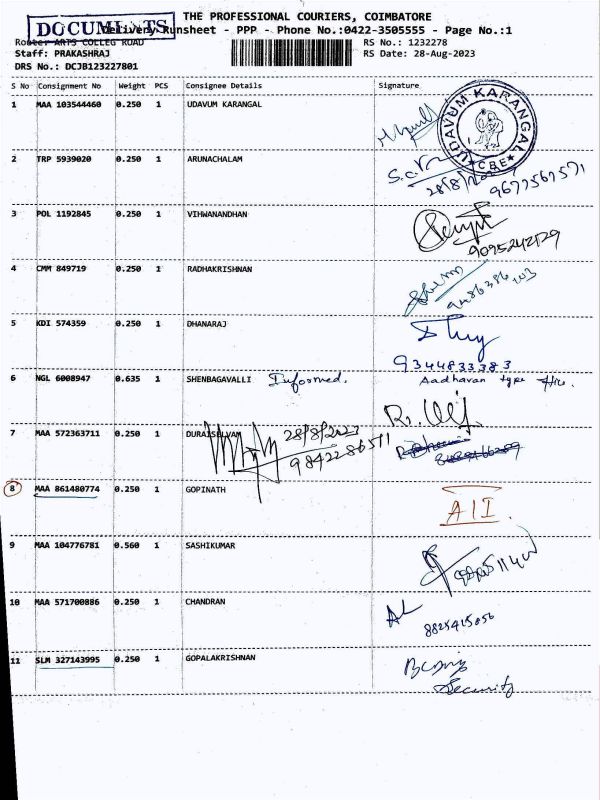 THE PROFESSIONAL COURIERS, COIMBATORE
DOCUMENTS
Delivery Runsheet - PPP - Phone No.:0422-3505555 - Page No.:1
Route: ARTS COLLEG ROAD RS No.: 1232278
Staff: PRAKASHRAJ RS Date: 28-Aug-2023
DRS No.: DCJB123227801
S No Consignment No Weight PCS Consignee Details Signature
1 MAA 103544460 0.250 1 UDAVUM KARANGAL
UDAVUM KARANGAL
★ CBE ★
2 TRP 5939020 0.250 1 ARUNACHALAM
28/8/
3 POL 1192845 0.250 1 VIHWANANDHAN
9095242129
4 CMM 849719 0.250 1 RADHAKRISHNAN
5 KDI 574359 0.250 1 DHANARAJ
9344833383
6 NGL 6008947 0.635 1 SHENBAGAVALLI Informed. Aadhavan type
7 MAA 572363711 0.250 1 DURAISELVAM 28/8/2023
9842286511
8 MAA 861480774 0.250 1 GOPINATH
AII.
9 MAA 104776781 0.560 1 SASHIKUMAR
10 MAA 571700886 0.250 1 CHANDRAN
8825415056
11 SLM 327143995 0.250 1 GOPALAKRISHNAN
Security